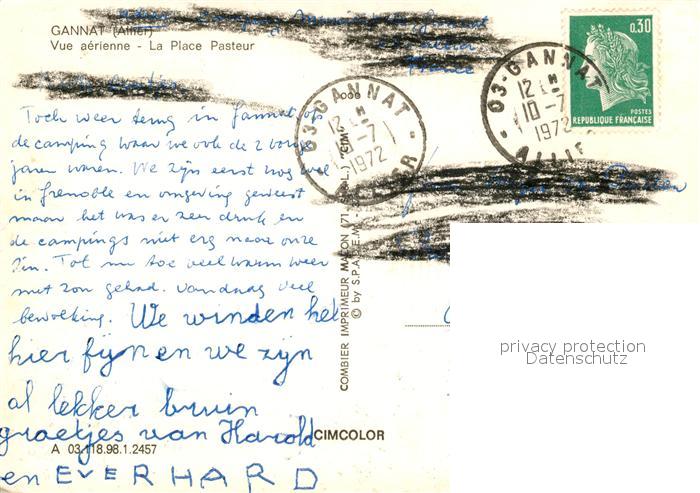 GANNAT (Allier)
Vue aérienne - La Place Pasteur
France
Toch weer terug in Gannat op
de camping waar we ook de 2 vorige
jaren waren. We zijn eerst nog wel
in Grenoble en omgeving geweest
maar het was er zeer druk en
de campings niet erg naar onze
zin. Tot nu toe veel warm weer
met zon gehad. Vandaag veel
bewolking. We winden het
hier fijn en we zijn
al lekker bruin
groetjes van Harold
en EVERHARD
A 03.118.98.1.2457
CIMCOLOR
COMBIER IMPRIMEUR MACON (71 "CIM"
© by S.P.A.D.E.M.
03-GANNAT
12 H
10-7
1972
03-GANNAT
12 H
10-7
1972
ALLIER
0,30
POSTES
REPUBLIQUE FRANÇAISE
privacy protection
Datenschutz